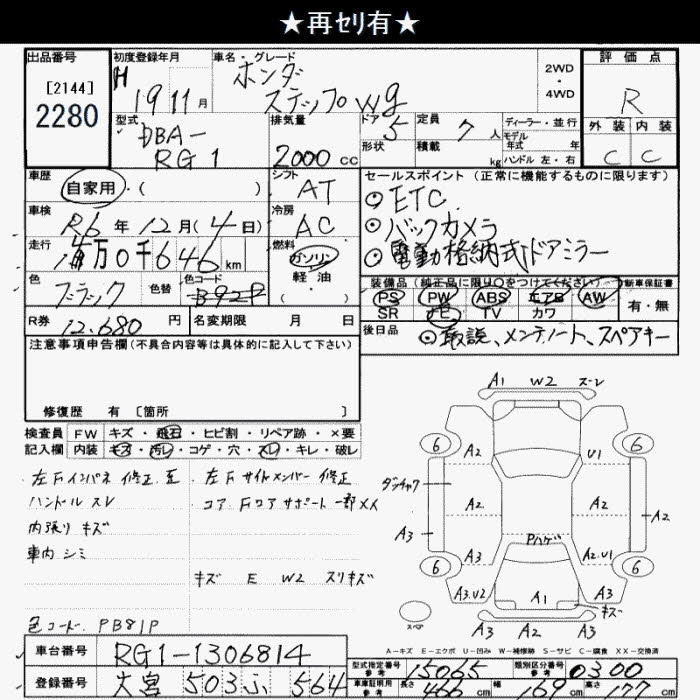 ★再ｾﾘ有★
出品番号
[2144]
2280
初度登録年月
H 19 11 月
車名・グレード
ホンダ
ステップWg
2WD
・
4WD
評価点
R
外装 内装
C C
型式
DBA-
RG1
排気量
2000 cc
ドア 5
形状
定員 7 人
積載 kg
ディーラー・並行
モデル
年式 年
ハンドル 左・右
車歴
自家用・( )
シフト
AT
車検
R6 年 12 月 (4 日)
冷房
AC
走行
万 0 千 646 km
燃料
ガソリン
軽・油
( )
色
ブラック
色替
色コード
B92P
R券
12.680 円
名変期限 月 日
セールスポイント (正常に機能するものに限ります)
◎ETC
◎バックカメラ
◎電動格納式ドアミラー
装備品 (純正品に限り○をつけてください)
PS PW ABS エアB AW
SR ナビ TV カワ
新車保証書
有・無
後日品
◎取説、メンテノート、スペアキー
注意事項申告欄(不具合内容等は具体的に記入して下さい)
修復歴 有 [箇所 ]
検査員 FW キズ・飛石・ヒビ割・リペア跡・×要
記入欄 内装 キズ・汚レ・コゲ・穴・スレ・キレ・破レ
左Fインパネ修正 歪
ハンドル スレ
内張り キズ
車内 シミ
左Fサイドメンバー 修正
コア Fロアサポート一部メイ
キズ E W2 スリキズ
色コード PB81P
A1 W2 スーレ
6 6
A2 U1
ダッチャク
A2 A2
A2
A3
Pハゲ
A3 A2.U1
6 6
A3.U2 A1 A3
キズ
スペア
A2 A3
A-キズ E-エクボ U-凹み W-補修跡 S-サビ C-腐食 XX-交換済
車台番号 RG1-1306814
登録番号 大宮 503 ふ 564
型式指定番号
参考
15065
類別区分番号
参考
0300
車庫証明用
参考
長さ 466 cm
幅 169 cm
高さ 177 cm